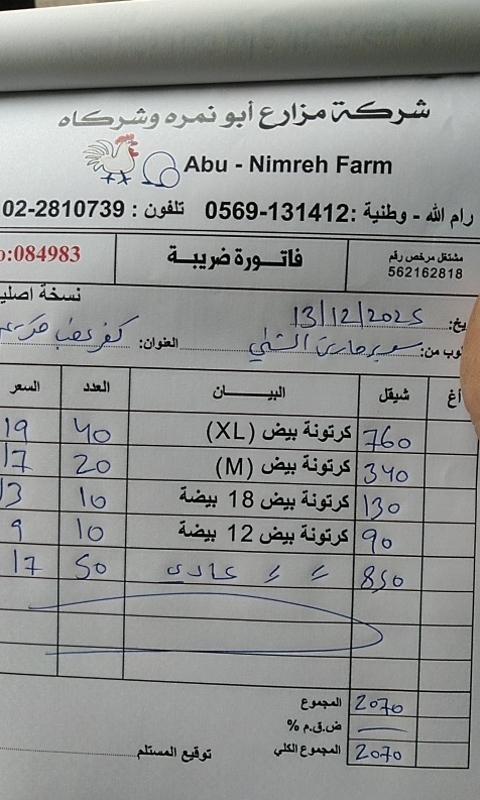 شركة مزارع أبو نمره وشركاه
Abu - Nimreh Farm
رام الله - وطنية :0569-131412 تلفون : 02-2810739
مشتغل مرخص رقم
562162818
فاتورة ضريبة
o:084983
نسخة اصلي
يخ: 13/12/2025
لوب من: سوبر ماركت العنوان: كفر عقب
أغ شيقل البيــــان العدد السعر
760 كرتونة بيض (XL) 40 19
340 كرتونة بيض (M) 20 17
130 كرتونة بيض 18 بيضة 10 13
90 كرتونة بيض 12 بيضة 10 9
850 〃 〃 عادي 50 17
المجموع 2070
ض.ق.م %
المجموع الكلي 2070
توقيع المستلم